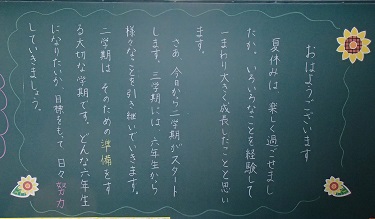 おはようございます
夏休みは 楽しく過ごせまし
たか。いろいろなことを経験して
一まわり大きく成長したことと思い
ます。
さあ 今日から二学期がスタート
します。三学期には 六年生から
様々なことを引き継いでいきます。
二学期は そのための準備をす
る大切な学期です。どんな六年生
になりたいか、目標をもって 日々努力
していきましょう。